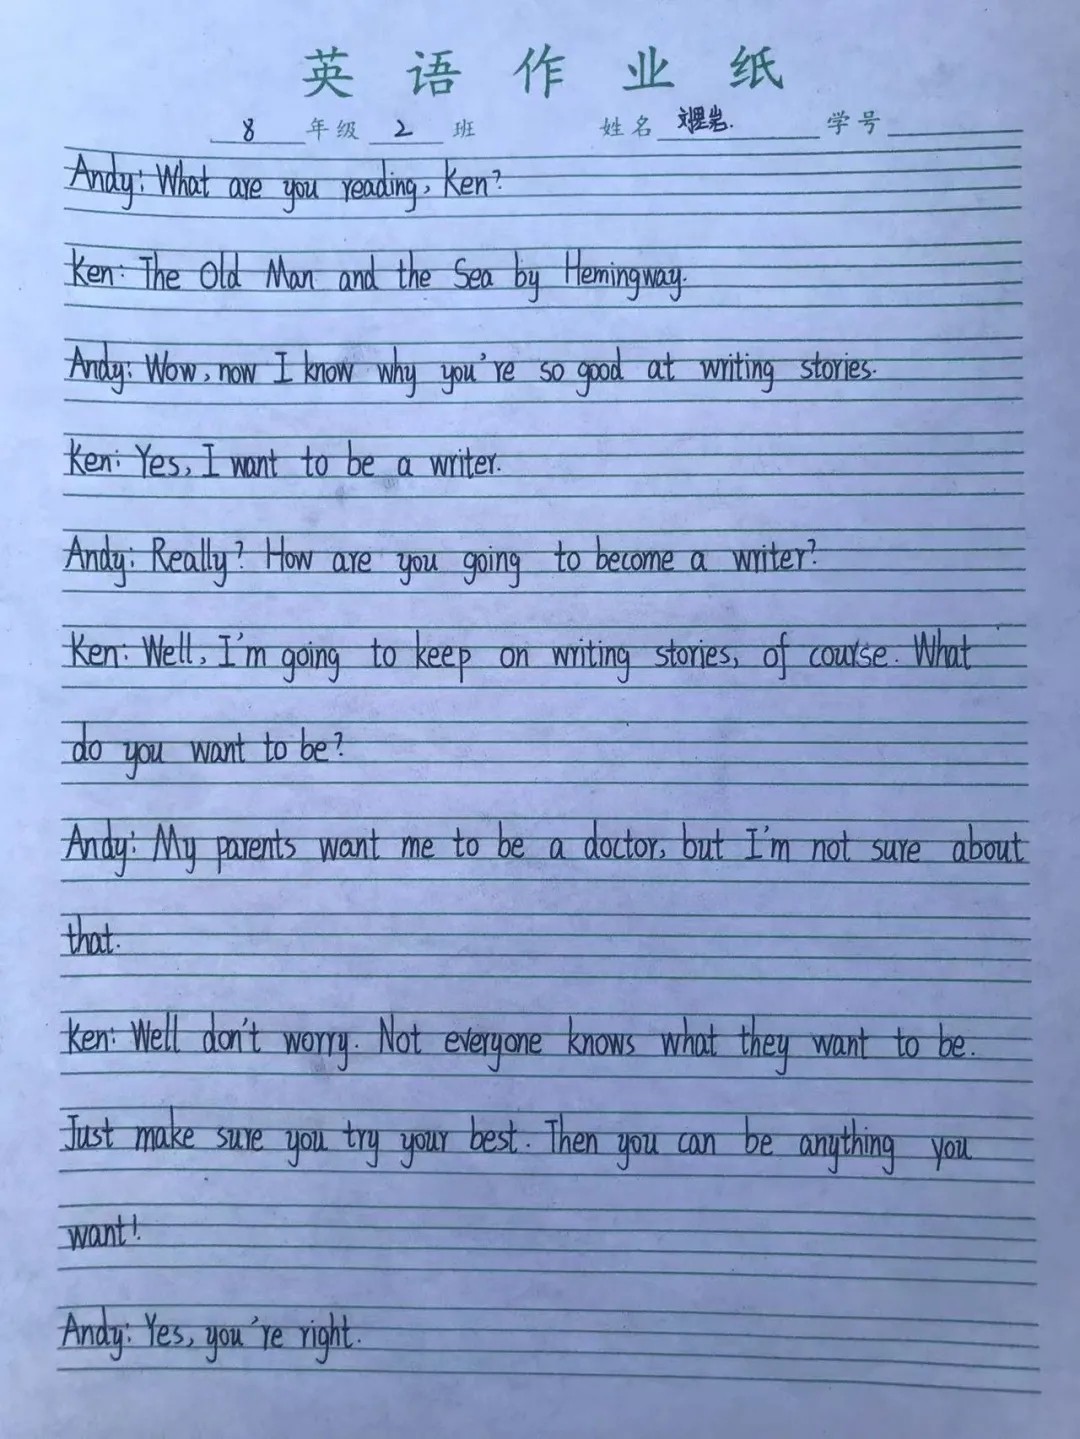 英语作业纸
8 年级 2 班 姓名 刘星岩. 学号
Andy: What are you reading, Ken?
Ken: The Old Man and the Sea by Hemingway.
Andy: Wow, now I know why you're so good at writing stories.
Ken: Yes, I want to be a writer.
Andy: Really? How are you going to become a writer?
Ken: Well, I'm going to keep on writing stories, of course. What
do you want to be?
Andy: My parents want me to be a doctor, but I'm not sure about
that.
Ken: Well don't worry. Not everyone knows what they want to be.
Just make sure you try your best. Then you can be anything you
want!
Andy: Yes, you're right.